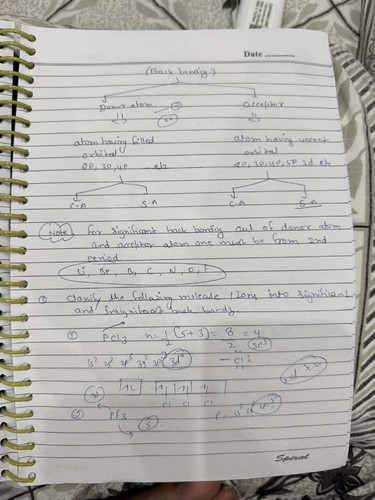 Date ............
(Back bonding)
Donor atom acceptor
atom having filled orbital
2P, 3P, 4P etc
atom having vacent orbital
2P, 3P, 4P, 5P 3d etc
C.A S.A C.A S.A
Note for significant back bonding out of donor atom
and acceptor atom one must be from 2nd
period
Li, Be, B, C, N, O, F
classify the following molecule / Ions into significant
and insignificant back bonding.
① PCl3 n = 1/2 (5+3) = 8/2 = 4
1s² 2s² 2p⁶ 3s² 3p³ 3d⁰
Cl Cl Cl
② PF3
Spiral